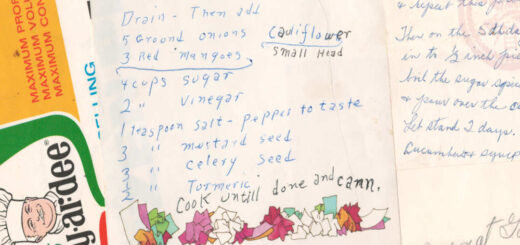 Drain - Then add
5 Ground onions Cauliflower
3 Red mangoes small Head
4 cups sugar
2 " Vinegar
1 teaspoon salt - pepper to taste
3 " mustard seed
3 " celery seed
1/2 " Tormeric
Cook untill done and cann.
MAXIMUM
MAXIMUM VOL
MAXIMUM CON
SELLING
y·ar·dee®
& repeat this
Then on the 5th day
in to 2 inch pie
boil the sugar spic
& pour over the c
Let stand 2 days.
Cucumbers & syrup